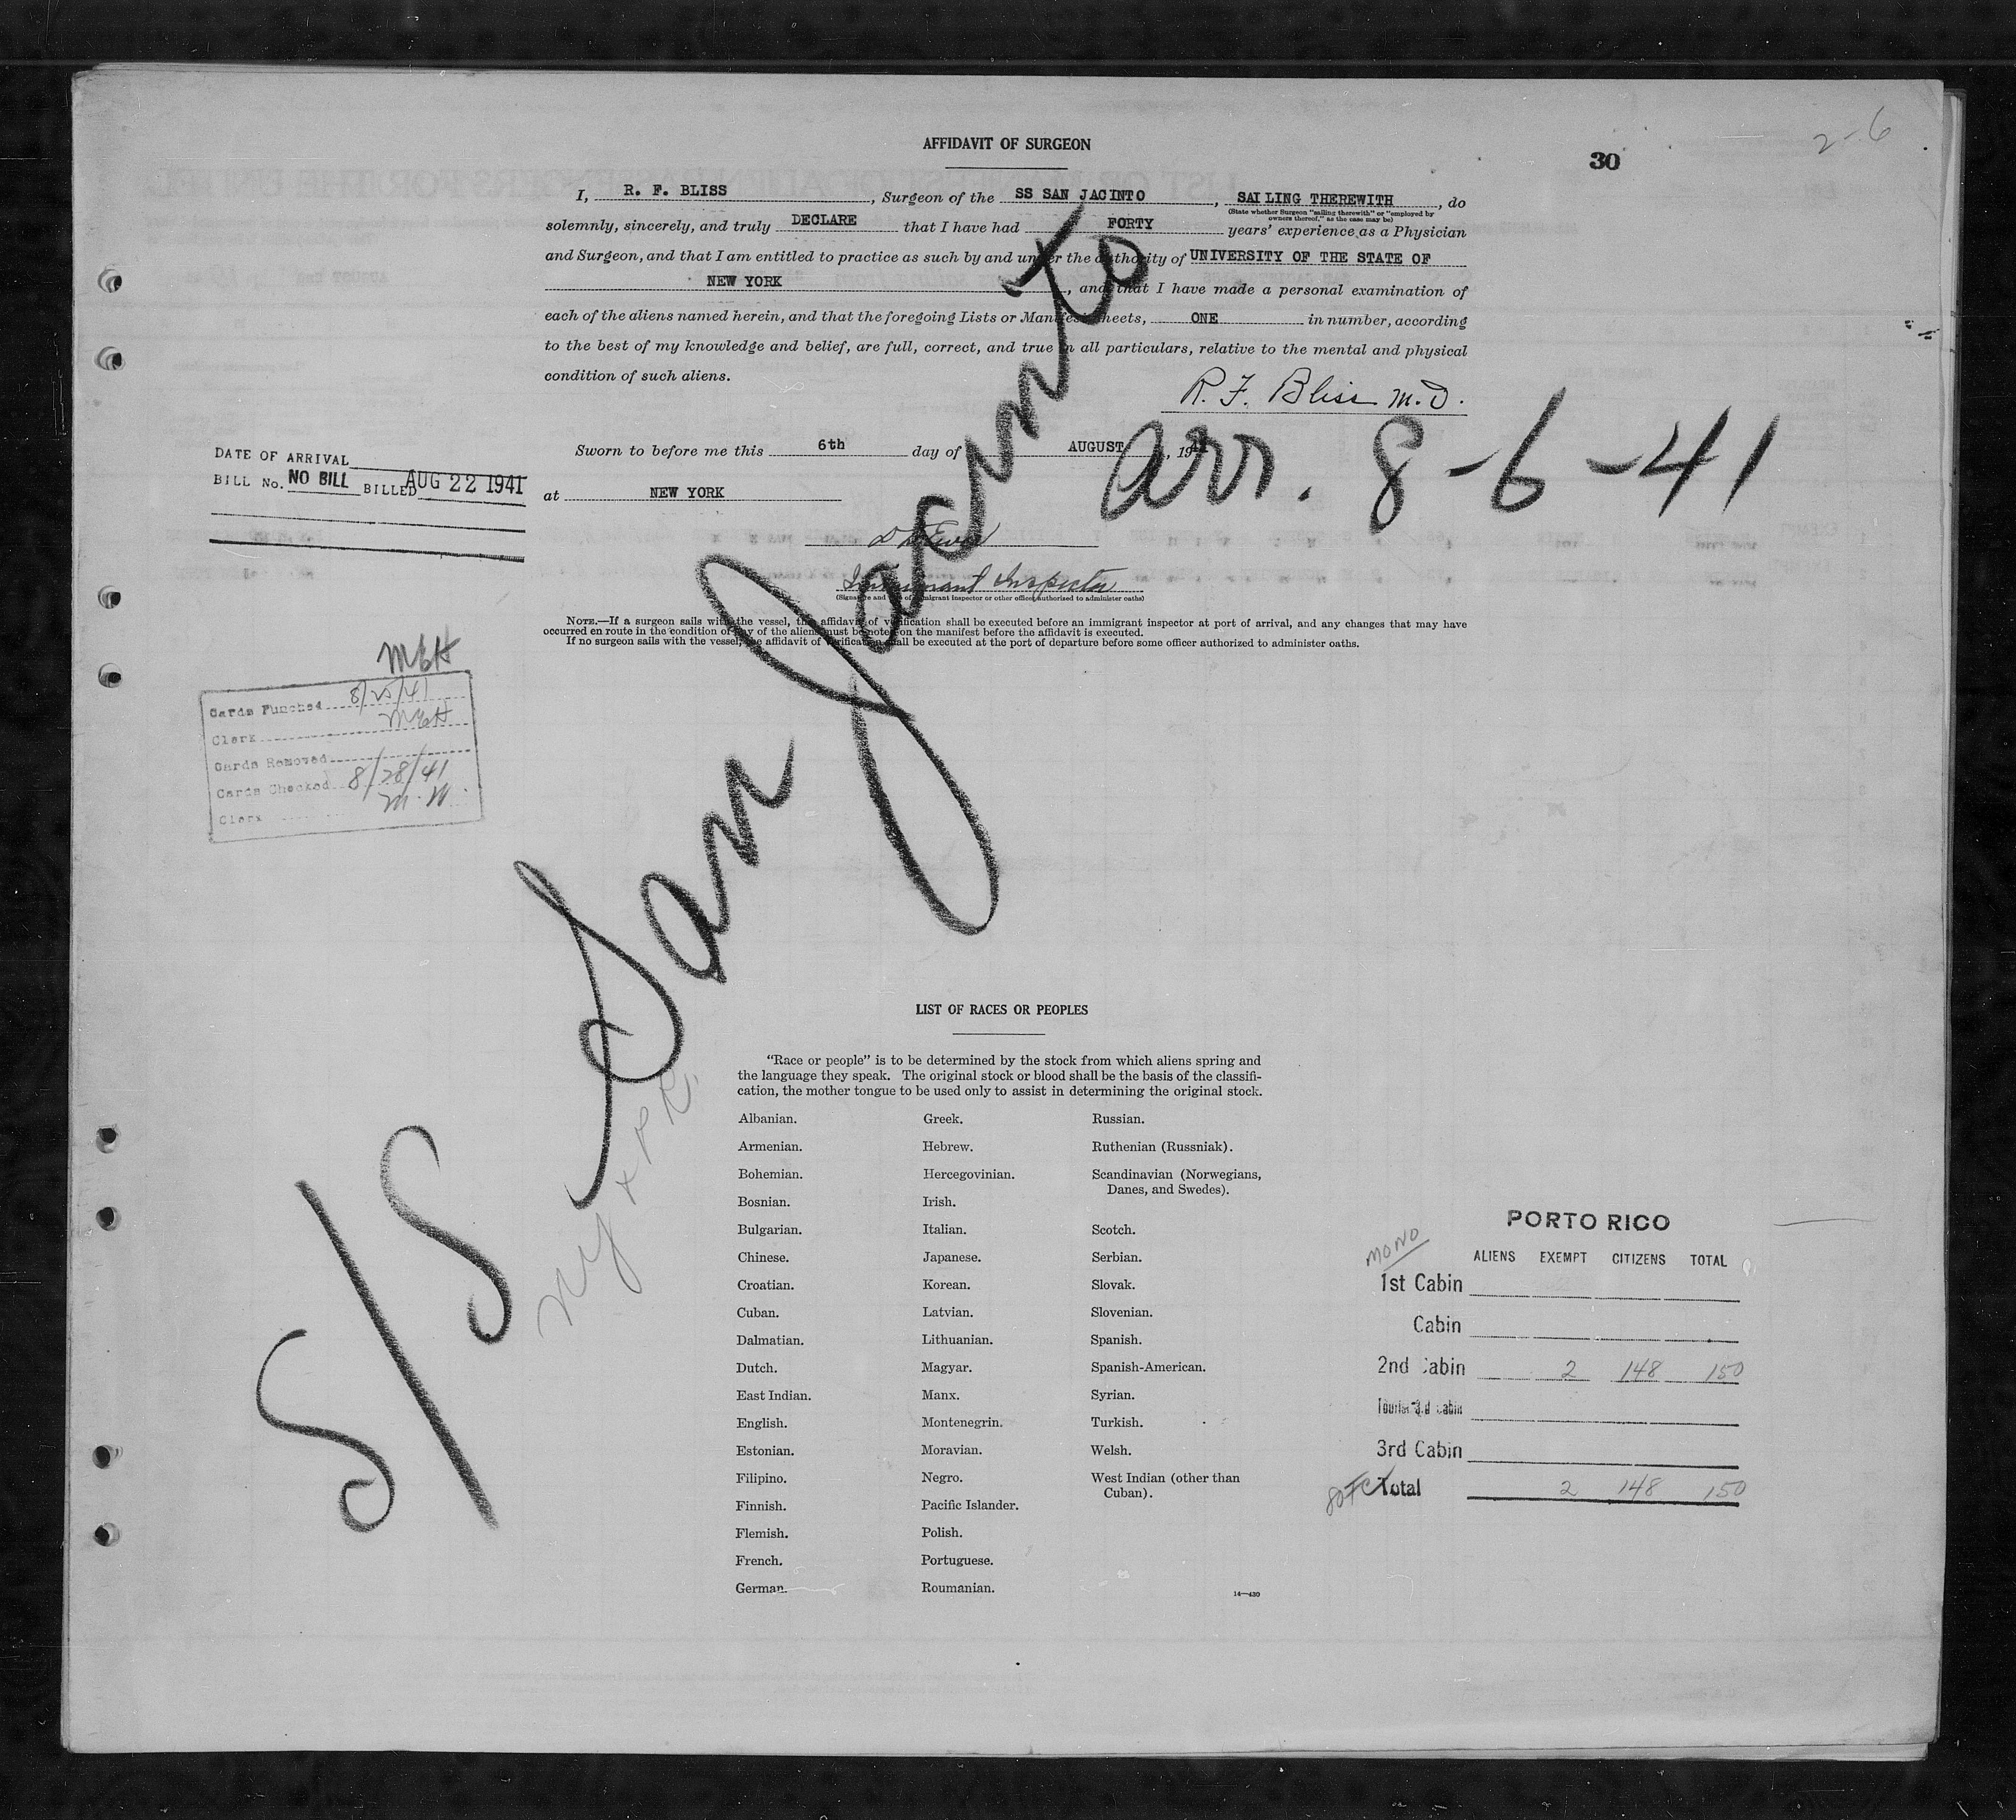 2-6
AFFIDAVIT OF SURGEON
30
I, R. F. BLISS, Surgeon of the SS SAN JACINTO, SAILING THEREWITH, do
(State whether Surgeon "sailing therewith" or "employed by
owners thereof," as the case may be)
solemnly, sincerely, and truly DECLARE that I have had FORTY years' experience as a Physician
and Surgeon, and that I am entitled to practice as such by and under the authority of UNIVERSITY OF THE STATE OF
NEW YORK, and that I have made a personal examination of
each of the aliens named herein, and that the foregoing Lists or Manifest Sheets, ONE in number, according
to the best of my knowledge and belief, are full, correct, and true in all particulars, relative to the mental and physical
condition of such aliens.
R. F. Bliss M.D.
Sworn to before me this 6th day of AUGUST, 1941
at NEW YORK
Immigrant Inspector
(Signature and title of immigrant inspector or other officer authorized to administer oaths)
NOTE.—If a surgeon sails with the vessel, the affidavit of verification shall be executed before an immigrant inspector at port of arrival, and any changes that may have
occurred en route in the condition of any of the aliens must be noted on the manifest before the affidavit is executed.
If no surgeon sails with the vessel, the affidavit of verification shall be executed at the port of departure before some officer authorized to administer oaths.
arr. 8-6-41
S/S San Jacinto
DATE OF ARRIVAL
BILL No. NO BILL BILLED AUG 22 1941
MEH
Cards Punched 8/25/41
Clerk MEH
Cards Removed
Cards Checked 8/28/41
Clerk M.W.
NY + PR
LIST OF RACES OR PEOPLES
"Race or people" is to be determined by the stock from which aliens spring and
the language they speak. The original stock or blood shall be the basis of the classifi-
cation, the mother tongue to be used only to assist in determining the original stock.
Albanian.
Armenian.
Bohemian.
Bosnian.
Bulgarian.
Chinese.
Croatian.
Cuban.
Dalmatian.
Dutch.
East Indian.
English.
Estonian.
Filipino.
Finnish.
Flemish.
French.
German.
Greek.
Hebrew.
Hercegovinian.
Irish.
Italian.
Japanese.
Korean.
Latvian.
Lithuanian.
Magyar.
Manx.
Montenegrin.
Moravian.
Negro.
Pacific Islander.
Polish.
Portuguese.
Roumanian.
Russian.
Ruthenian (Russniak).
Scandinavian (Norwegians,
Danes, and Swedes).
Scotch.
Serbian.
Slovak.
Slovenian.
Spanish.
Spanish-American.
Syrian.
Turkish.
Welsh.
West Indian (other than
Cuban).
14—430
PORTO RICO
MONO
ALIENS EXEMPT CITIZENS TOTAL
1st Cabin
Cabin
2nd Cabin 2 148 150
Tourist 3rd Cabin
3rd Cabin
Total 2 148 150